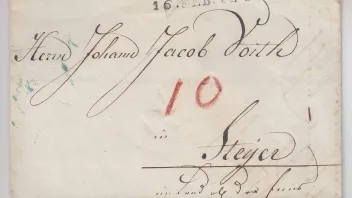 16. FEB.
Herrn Johann Jacob Voith
10
in
Steÿer